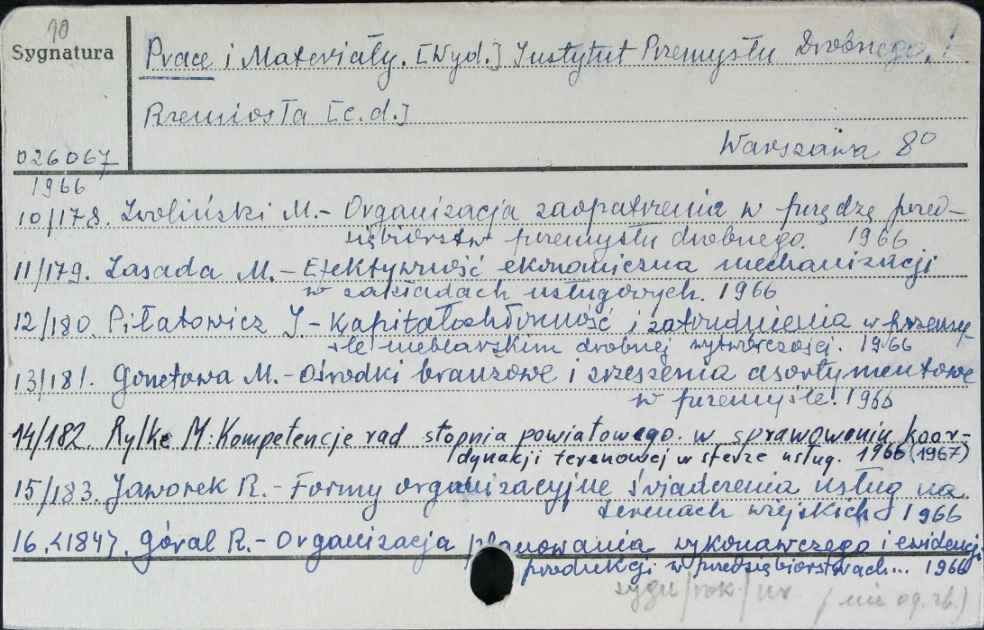 10
Sygnatura
Prace i Materiały. [Wyd.] Instytut Przemysłu Drobnego i
Rzemiosła [c.d.]
Warszawa 8°
026067
1966
10/178. Woliński M.- Organizacja zaopatrzenia w przed-
siębiorstw przemysłu drobnego. 1966
11/179. Zasada M.- Efektywność ekonomiczna mechanizacji
w zakładach usługowych. 1966
12/180. Piłatowicz J.- Kapitałochłonność i zatrudnienia w przemy-
śle meblarskim drobnej wytwórczości. 1966
13/181. Gonetowa M.- Ośrodki branżowe i zrzeszenia asortymentowe
w przemyśle. 1966
14/182. Rylke M: Kompetencje rad stopnia powiatowego w sprawowaniu koor-
dynacji terenowej w sferze usług. 1966 (1967)
15/183. Jaworek R.- Formy organizacyjne świadczenia usług na
terenach wiejskich 1966
16.<184>. Góral R.- Organizacja planowania wykonawczego i ewidencji
produkcji w przedsiębiorstwach... 1966
sygn/rok/nr (nie og. zb.)